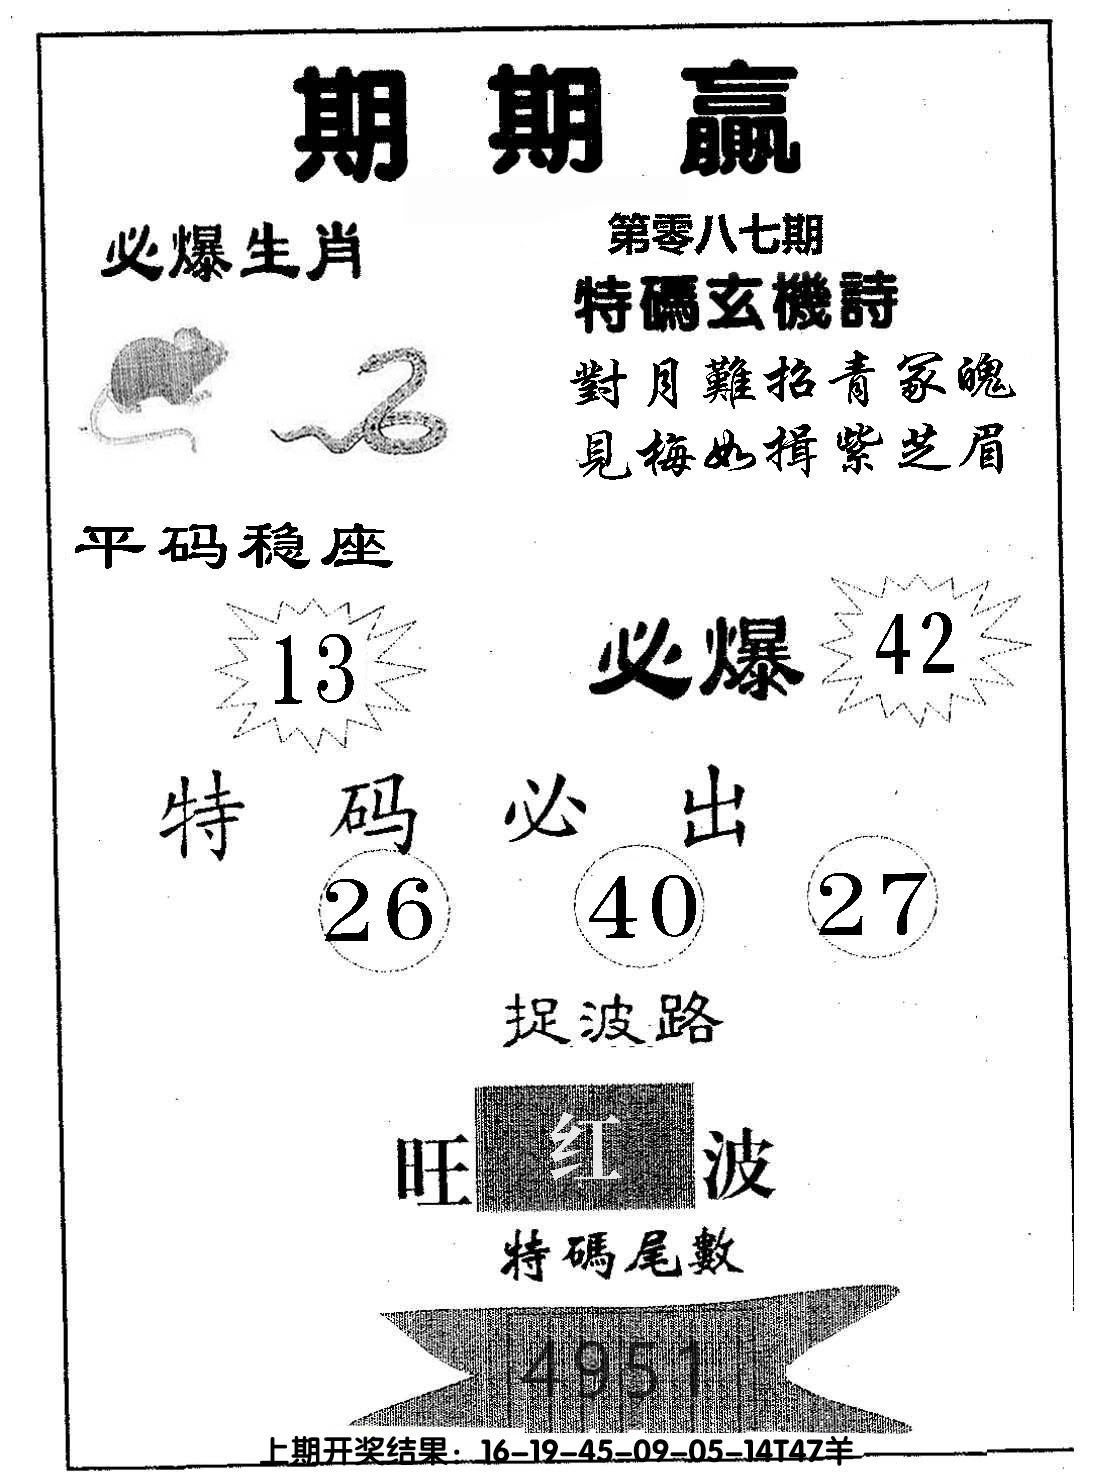 期期赢
必爆生肖
第零八七期
特碼玄機詩
對月難招青冢魄
見梅如揖紫芝眉
平码稳座
13
必爆 42
特码必出
26 40 27
捉波路
旺 红 波
特碼尾數
4951
上期开奖结果：16-19-45-09-05-14T47羊